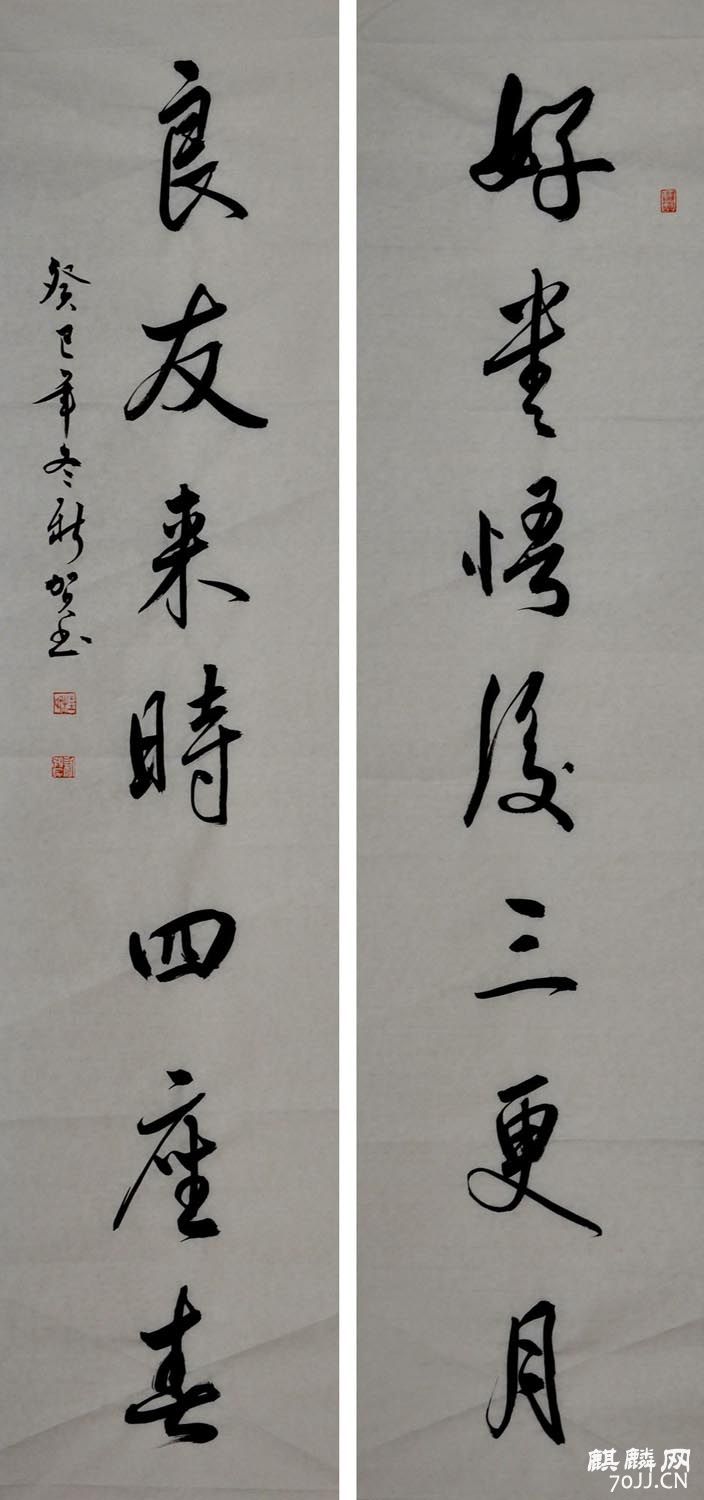 好書悟後三更月
良友来時四座春
癸巳年冬新贺书
麒麟网
70JJ.CN